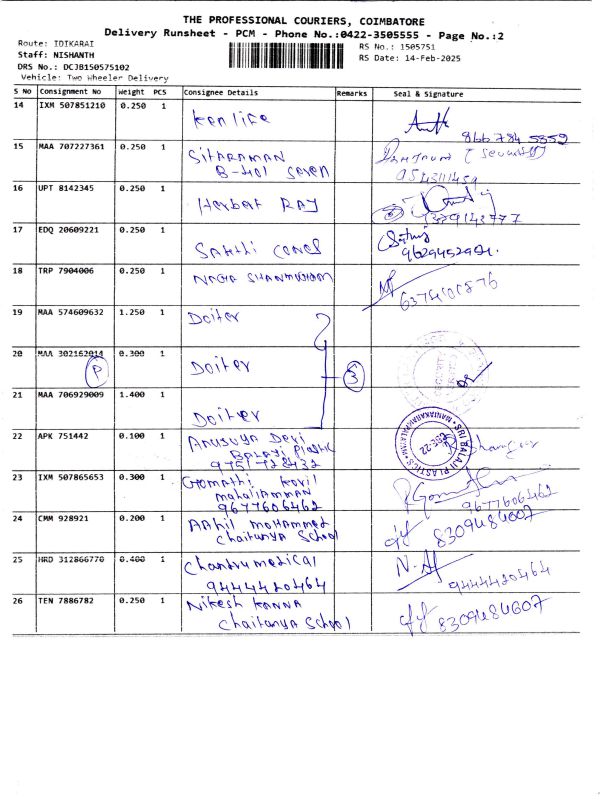 THE PROFESSIONAL COURIERS, COIMBATORE
Delivery Runsheet - PCM - Phone No.:0422-3505555 - Page No.:2
Route: IDIKARAI
Staff: NISHANTH
DRS No.: DCJB150575102
Vehicle: Two Wheeler Delivery
RS No.: 1505751
RS Date: 14-Feb-2025
S No Consignment No Weight PCS Consignee Details Remarks Seal & Signature
14 IXM 507851210 0.250 1
Ken life
866 784 5859
15 MAA 707227361 0.250 1
Sitharaman
B-401 Seven
16 UPT 8142345 0.250 1
Herbert RAJ
17 EDQ 20609221 0.250 1
Sakthi Cones
18 TRP 7904006 0.250 1
NAGA SHANMUGAM
19 MAA 574609632 1.250 1
Doiter
20 MAA 302162014 0.300 1
P
Doiter
3
21 MAA 706929009 1.400 1
Doiter
22 APK 751442 0.100 1
Anusuya Devi
Balaji Plastic
9751728432
SRI BALAJI PLASTICS
23 IXM 507865653 0.300 1
Gomathi Kovil
mahaliamman
9677606462
9677606462
24 CMM 928921 0.200 1
AAhil mohammed
Chaitanya School
8309484607
25 HRD 312866770 0.400 1
Chandru medical
9444420464
N.
9444420464
26 TEN 7886782 0.250 1
Nikesh Kanna
Chaitanya School
8309484607